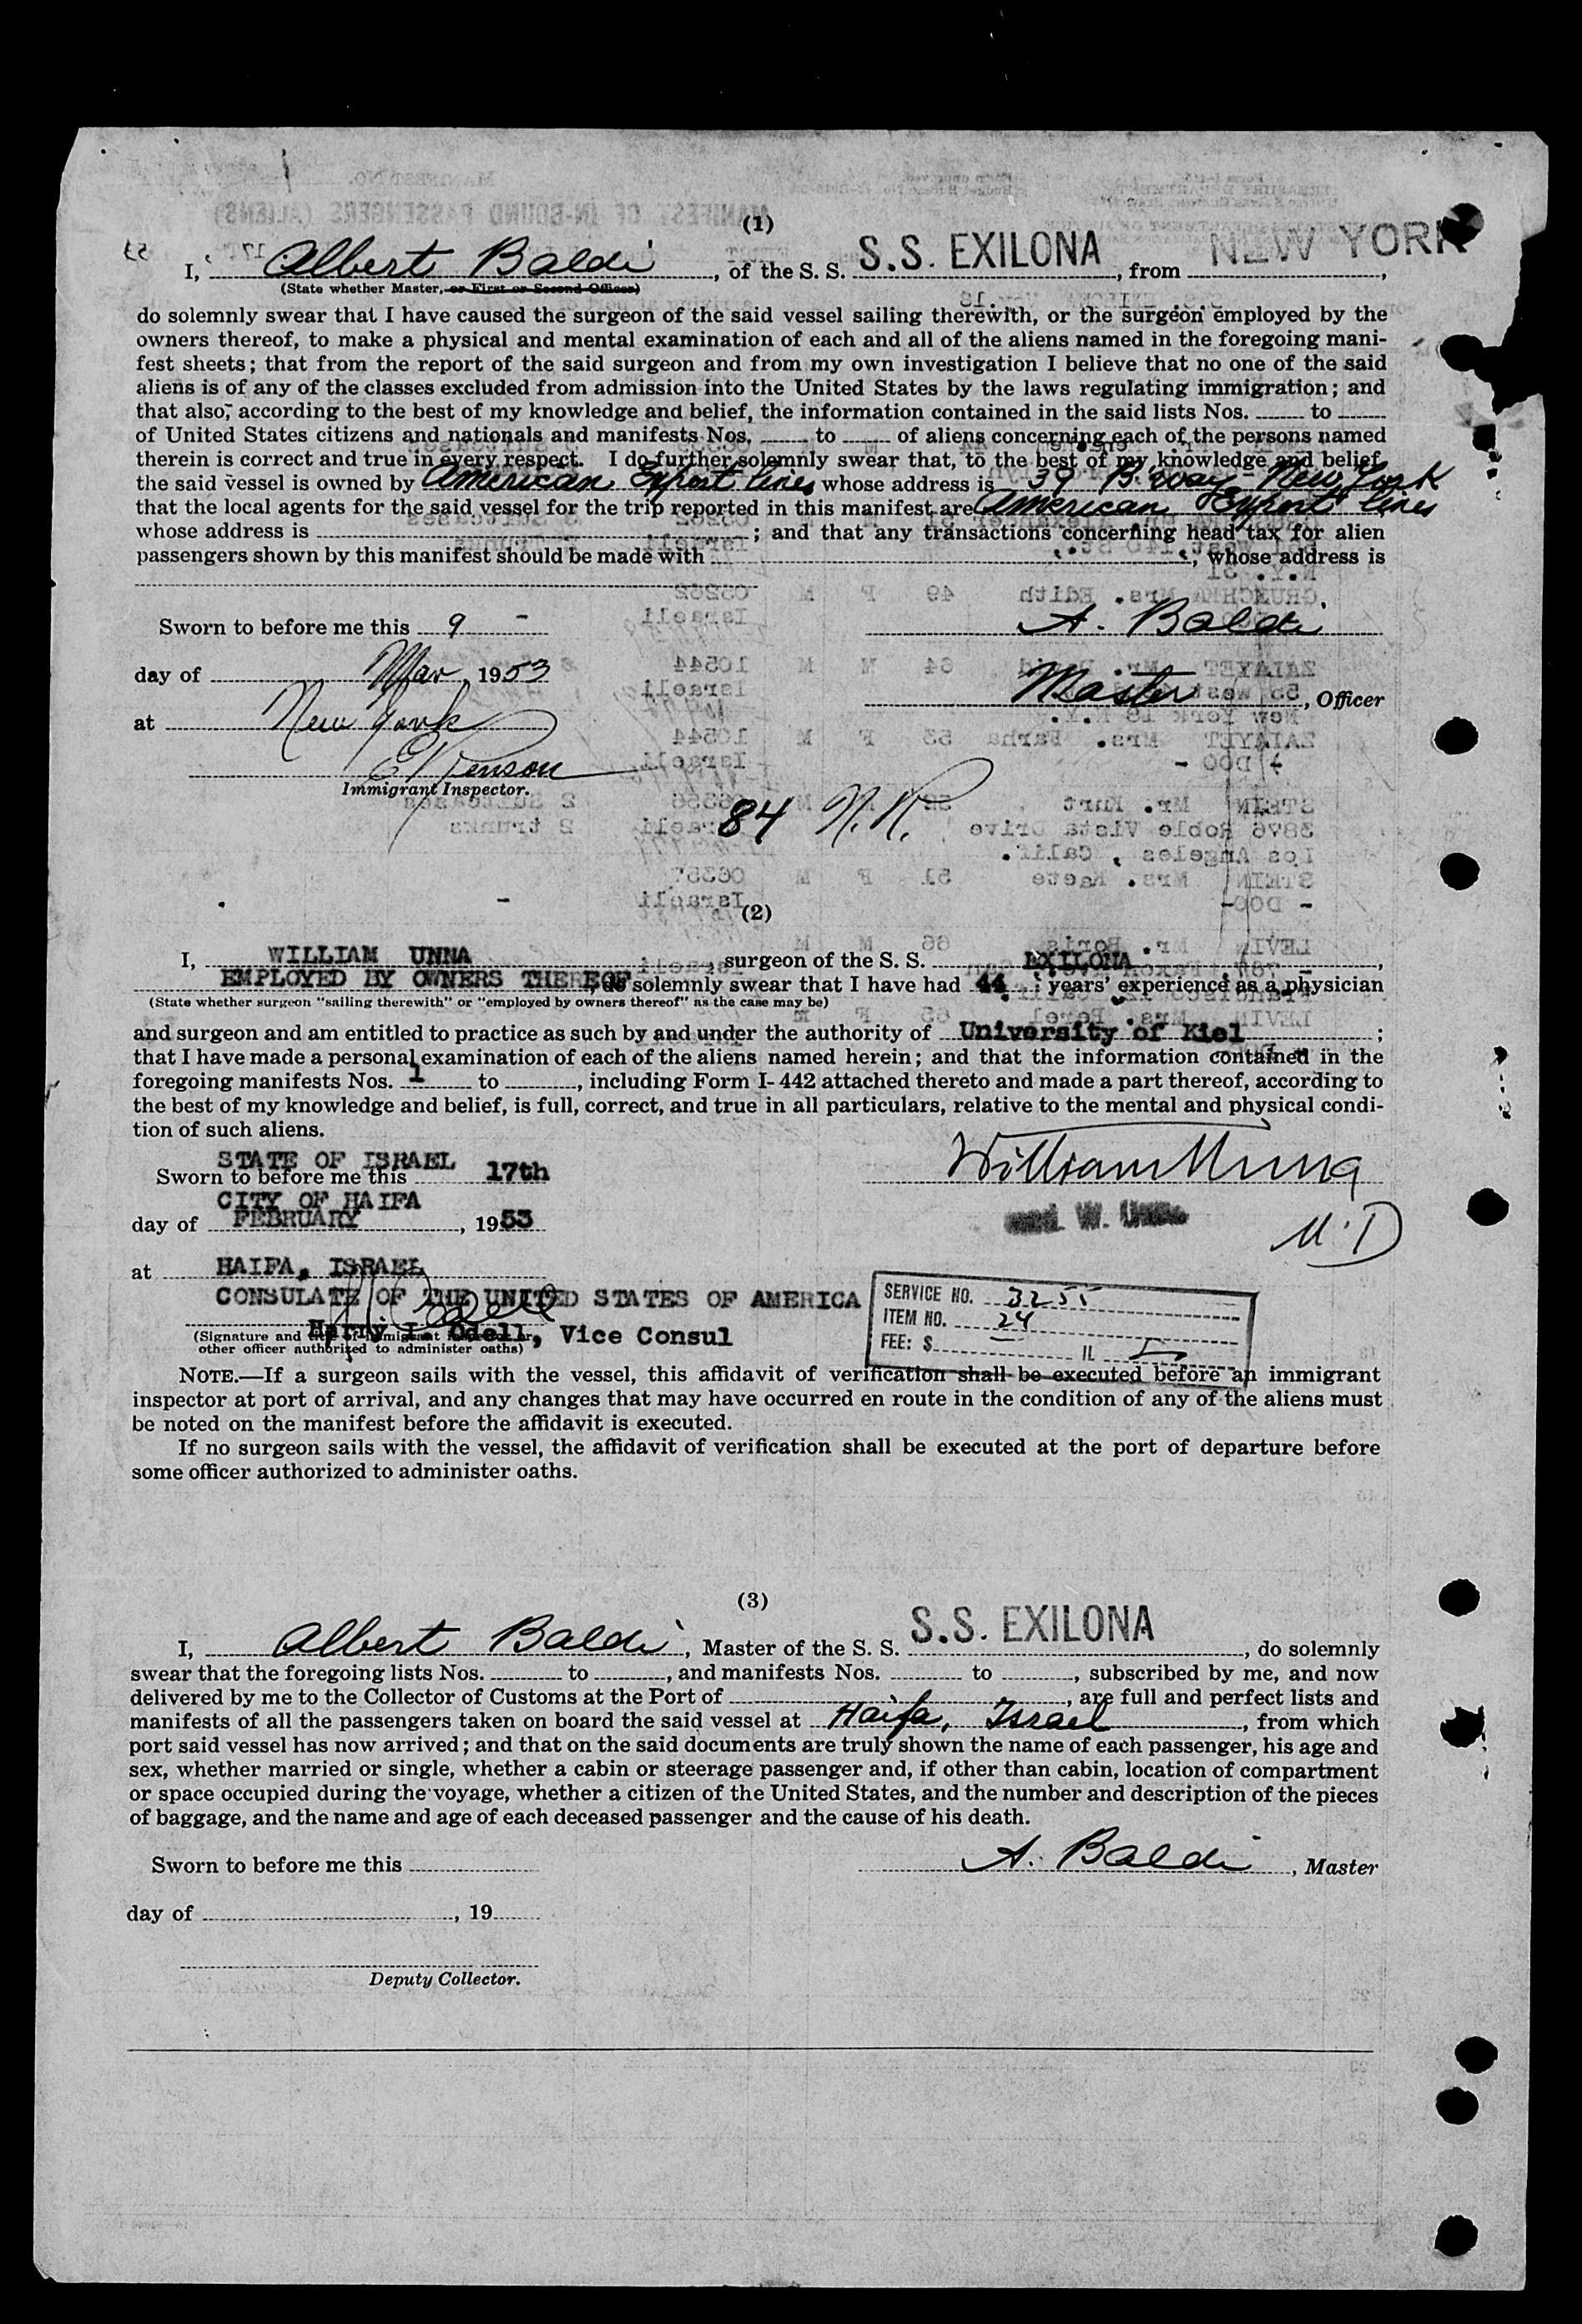 (1)
I, Albert Baldi, of the S. S. S.S. EXILONA, from NEW YORK,
(State whether Master, or First or Second Officer)
do solemnly swear that I have caused the surgeon of the said vessel sailing therewith, or the surgeon employed by the
owners thereof, to make a physical and mental examination of each and all of the aliens named in the foregoing mani-
fest sheets; that from the report of the said surgeon and from my own investigation I believe that no one of the said
aliens is of any of the classes excluded from admission into the United States by the laws regulating immigration; and
that also, according to the best of my knowledge and belief, the information contained in the said lists Nos. to
of United States citizens and nationals and manifests Nos. to of aliens concerning each of the persons named
therein is correct and true in every respect. I do further solemnly swear that, to the best of my knowledge and belief,
the said vessel is owned by American Export Lines whose address is 39 B.way New York
that the local agents for the said vessel for the trip reported in this manifest are American Export Lines
whose address is ; and that any transactions concerning head tax for alien
passengers shown by this manifest should be made with , whose address is
Sworn to before me this 9
A. Baldi
day of Mar, 1953
Master, Officer
at New York
Immigrant Inspector.
84 N.R.
(2)
I, WILLIAM UNNA, surgeon of the S. S. EXILONA,
EMPLOYED BY OWNERS THEREOF, do solemnly swear that I have had 44 years' experience as a physician
(State whether surgeon "sailing therewith" or "employed by owners thereof" as the case may be)
and surgeon and am entitled to practice as such by and under the authority of University of Kiel ;
that I have made a personal examination of each of the aliens named herein; and that the information contained in the
foregoing manifests Nos. 1 to , including Form I-442 attached thereto and made a part thereof, according to
the best of my knowledge and belief, is full, correct, and true in all particulars, relative to the mental and physical condi-
tion of such aliens.
STATE OF ISRAEL
Sworn to before me this 17th
William Unna
CITY OF HAIFA
day of FEBRUARY, 1953
med. W. Unna
M.D
at HAIFA, ISRAEL
CONSULATE OF THE UNITED STATES OF AMERICA
Harry I. Odell, Vice Consul
(Signature and title of immigrant inspector or
other officer authorized to administer oaths)
SERVICE NO. 3255
ITEM NO. 24
FEE: $ — IL
NOTE.—If a surgeon sails with the vessel, this affidavit of verification shall be executed before an immigrant
inspector at port of arrival, and any changes that may have occurred en route in the condition of any of the aliens must
be noted on the manifest before the affidavit is executed.
If no surgeon sails with the vessel, the affidavit of verification shall be executed at the port of departure before
some officer authorized to administer oaths.
(3)
I, Albert Baldi, Master of the S. S. S.S. EXILONA, do solemnly
swear that the foregoing lists Nos. to , and manifests Nos. to , subscribed by me, and now
delivered by me to the Collector of Customs at the Port of , are full and perfect lists and
manifests of all the passengers taken on board the said vessel at Haifa, Israel, from which
port said vessel has now arrived; and that on the said documents are truly shown the name of each passenger, his age and
sex, whether married or single, whether a cabin or steerage passenger and, if other than cabin, location of compartment
or space occupied during the voyage, whether a citizen of the United States, and the number and description of the pieces
of baggage, and the name and age of each deceased passenger and the cause of his death.
Sworn to before me this
A. Baldi, Master
day of , 19
Deputy Collector.